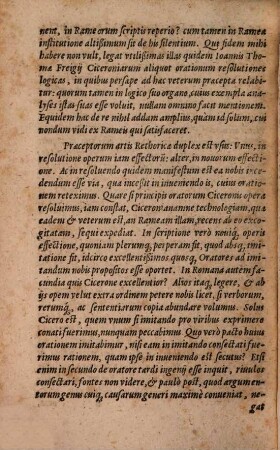 nent, in Rameorum scriptis reperio? cum tamen in Ramea
institutione altißimum sit de hu silentium. Qui fidem mihi
habere non vult, legat vtilißimas illas quidem Ioannis Tho-
mæ Freigij Ciceronianarum aliquot orationum resolutiones
logicas, in quibus persæpe ad hac veterum præcepta relabi-
tur: quorum tamen in logico suo organo, cuius exempla ana-
lyses istas suas esse voluit, nullam omnino facit mentionem.
Equidem hac de re nihil addam amplius, quàm id solum, cui
nondum vidi ex Rameis qui satisfaceret.
Præceptorum artis Rethoricæ duplex est vsus: Vnus, in
resolutione operum iam effectorũ: alter, in nouorum effecti-
one. Ac in resoluendo quidem manifestum est ea nobis ince-
dendum esse via, qua inceßit in inueniendo is, cuius oratio-
nem retexímus. Quare si principis oratorum Ciceronis opera
resoluimus, iam constat, Ciceronianamne technologiam, quæ
eadem & veterum est, an Rameam illam, recens ab eo exco-
gitatam, sequi expediat. In scriptione verò noniq́, operis
effectione, quoniam plerumq́, perperam fit, quod absq́, imi-
tatione fit, idcirco excellentißimos quosq́, Oratores ad imi-
tandum nobis propositos esse oportet. In Romana autem fa-
cundia quis Cicerone excellentior? Alios itaq́, legere, & ab
ijs opem velut extra ordinem petere nobis licet, si verborum,
rerumq́, ac sententiarum copia abundare volumus. Solus
Cicero est, quem vnum si imitando pro viribus exprimere
conati fuerimus, nunquam peccabimus Quo verò pacto huius
orationem imitabimur, nisi eam in imitando consectati fue-
rimus rationem, quam ipse in inueniendo est secutus? Etsi
enim in secundo de oratore tardi ingenij esse inquit, riuulos
consectari, fontes non videre, & paulò pòst, quod argumen-
torum genus cuiq́, causarum generi maximè conueniat, ne-
gat